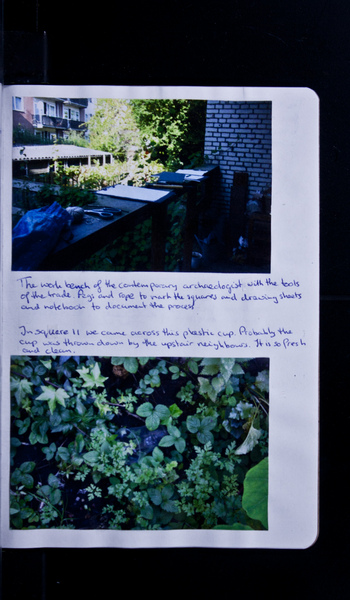 The work bench of the contemporary archaeologist with the tools
of the trade. Pegs and rope to mark the squares and drawing sheets
and notebook to document the process.
In square 11 we came across this plastic cup. Probably the
cup was thrown down by the upstair neighbours. It is so fresh
and clean.